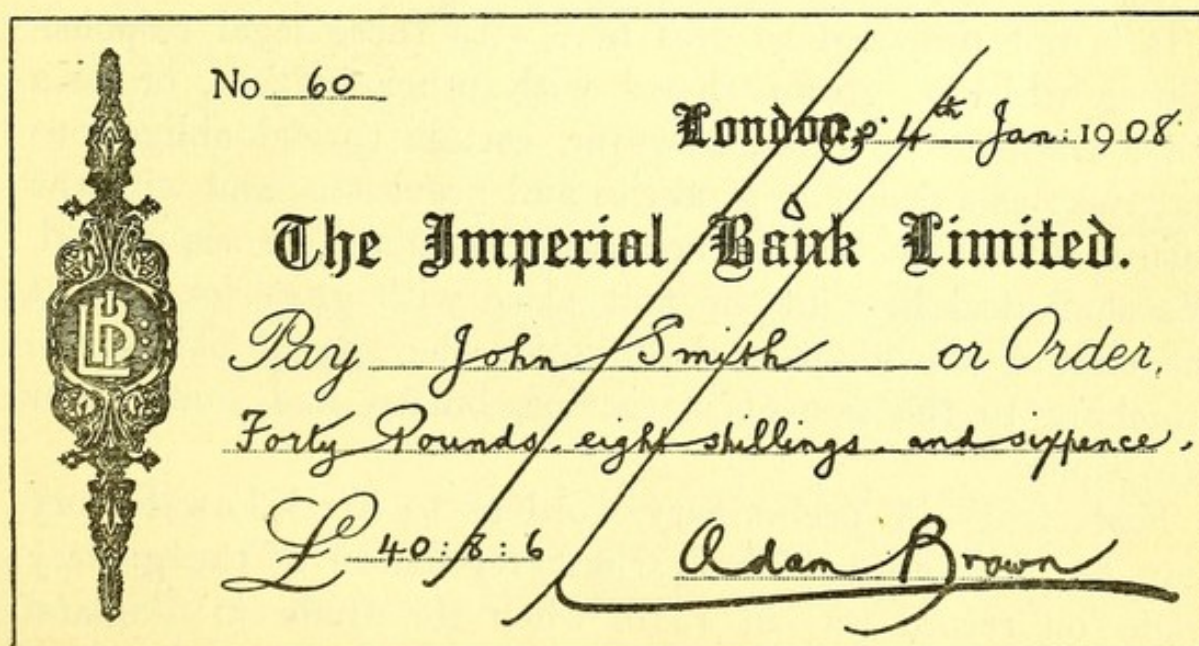 No 60
London, 4th Jan: 1908
& Co.
The Imperial Bank Limited.
Pay John Smith or Order,
Forty Pounds, eight shillings, and sixpence.
£ 40:8:6
Adam Brown